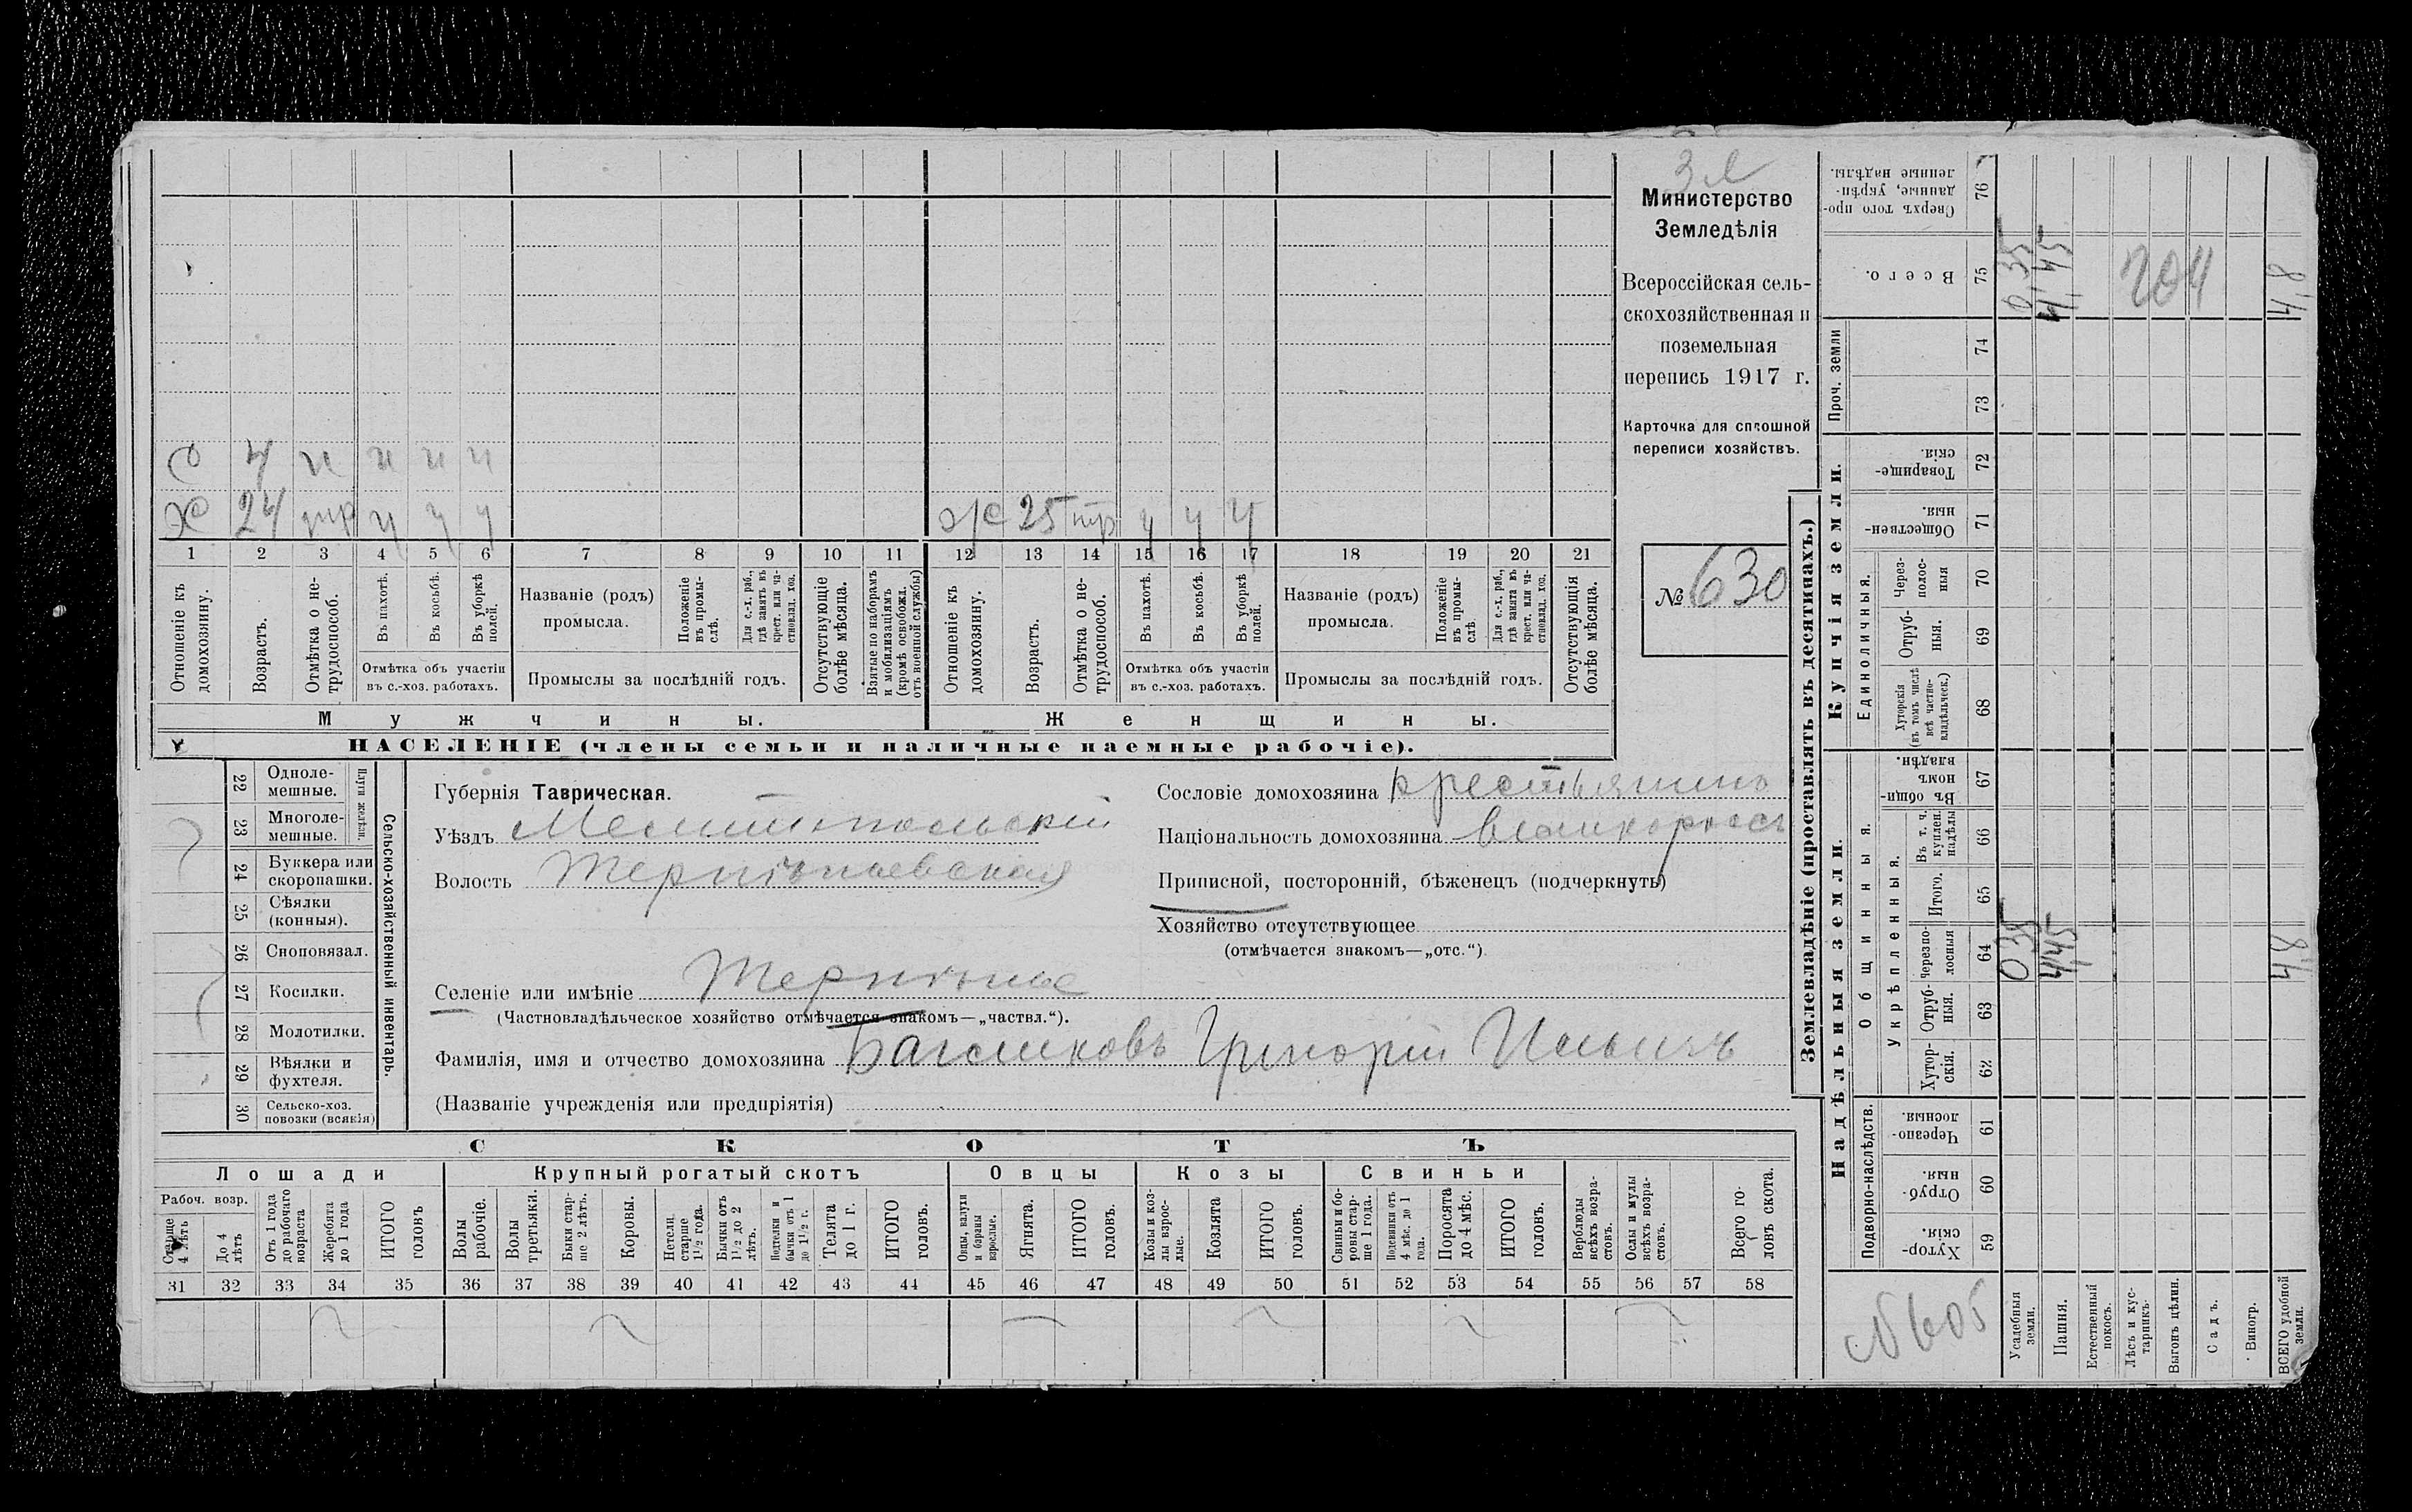 Министерство
Земледѣлія
Всероссійская сель-
скохозяйственная и
поземельная
перепись 1917 г.
Карточка для сплошной
переписи хозяйствъ.
№ 630
с 4 н н н н
х 24 тр ч ч ч
ж 25 тр ч ч ч
1 2 3 4 5 6 7 8 9 10 11 12 13 14 15 16 17 18 19 20 21
Отношеніе къ домохозяину.
Возрастъ.
Отмѣтка о не-трудоспособ.
Въ пахотѣ.
Въ косьбѣ.
Въ уборкѣ полей.
Отмѣтка объ участіи
въ с.-хоз. работахъ.
Названіе (родъ)
промысла.
Положеніе въ промы-слѣ.
Для с.-х. раб., гдѣ занятъ въ крест. или ча-стновлад. хоз.
Промыслы за послѣдній годъ.
Отсутствующіе болѣе мѣсяца.
Взятые по наборамъ и мобилизаціямъ (кромѣ освобожд. отъ военной службы)
Отношеніе къ домохозяину.
Возрастъ.
Отмѣтка о не-трудоспособ.
Въ пахотѣ.
Въ косьбѣ.
Въ уборкѣ полей.
Отмѣтка объ участіи
въ с.-хоз. работахъ.
Названіе (родъ)
промысла.
Положеніе въ промы-слѣ
Для с.-х. раб., гдѣ занята въ крест. или ча-стновлад. хоз.
Промыслы за послѣдній годъ.
Отсутствующія болѣе мѣсяца.
Мужчины.
Женщины.
НАСЕЛЕНІЕ (члены семьи и наличные наемные рабочіе).
22 Одноле-мешные.
23 Многоле-мешные.
Плуги желѣзн.
24 Буккера или скоропашки.
25 Сѣялки (конныя).
26 Сноповязал.
27 Косилки.
28 Молотилки.
29 Вѣялки и фухтеля.
30 Сельско-хоз. повозки (всякія)
Сельско-хозяйственный инвентарь.
Губернія Таврическая.
Уѣздъ Мелитопольскій
Волость Терпѣньевская
Селеніе или имѣніе Терпѣнье
(Частновладѣльческое хозяйство отмѣчается знакомъ—„частвл.“).
Фамилія, имя и отчество домохозяина Григорій Ильичъ
(Названіе учрежденія или предпріятія)
Сословіе домохозяина крестьянинъ
Національность домохозяина великороссъ
Приписной, посторонній, бѣженецъ (подчеркнуть)
Хозяйство отсутствующее
(отмѣчается знакомъ—„отс.“)
СКОТЪ
Лошади Крупный рогатый скотъ Овцы Козы Свиньи
Рабоч. возр.
Старше 4 лѣтъ
До 4 лѣтъ
Отъ 1 года до рабочаго возраста
Жеребята до 1 года
ИТОГО головъ
Волы рабочіе.
Волы третьяки.
Быки стар-ше 2 лѣтъ.
Коровы.
Нетели старше 1½ года.
Бычки отъ 1½ до 2 лѣтъ.
Подтелки и бычки отъ 1 до 1½ г.
Телята до 1 г.
ИТОГО головъ.
Овцы, валухи и бараны взрослые.
Ягнята.
ИТОГО головъ.
Козы и коз-лы взрос-лые.
Козлята
ИТОГО головъ.
Свиньи и бо-ровы стар-ше 1 года.
Подсвинки отъ 4 мѣс. до 1 года.
Поросята до 4 мѣс.
ИТОГО головъ.
Верблюды всѣхъ возра-стовъ.
Ослы и мулы всѣхъ возра-стовъ.
Всего го-ловъ скота.
31 32 33 34 35 36 37 38 39 40 41 42 43 44 45 46 47 48 49 50 51 52 53 54 55 56 57 58
Землевладѣніе (проставлять въ десятинахъ.)
Надѣльныя земли.
Купчія земли.
Проч. земли
Подворно-наслѣдств.
Общинныя.
Укрѣпленныя.
Единоличныя.
Хутор-скія. 59
Отруб-ныя. 60
Черезпо-лосныя. 61
Хутор-скія. 62
Отруб-ныя. 63
Черезпо-лосныя 64
Итого. 65
Въ т. ч. куплен. надѣлы 66
Въ общи-номъ владѣн. 67
Хуторскія (въ томъ числѣ всѣ частно-владѣльческ.) 68
Отруб-ныя. 69
Через-полос-ныя 70
Обществен-ныя. 71
Товарище-скія. 72
73
74
Всего. 75
Сверхъ того про-данные, укрѣп-ленные надѣлы. 76
Усадебныя земли. 0,35 0,35
Пашня. 4,45 4,45
Естественный покосъ.
Лѣсъ и кус-тарникъ.
Выгонъ цѣлин.
Садъ.
Виногр.
ВСЕГО удобной земли. 4,8 4,8
204
№ 605